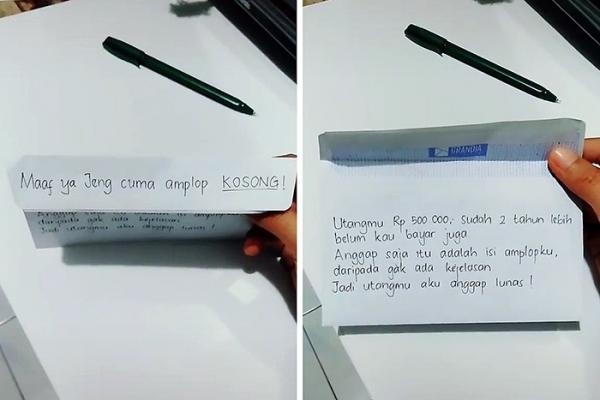 Maaf ya Jeng cuma amplop KOSONG!
Anggap saja itu adalah isi amplopku,
daripada gak ada kejelasan
Jadi utangmu aku anggap lunas!
GRANDIA
Utangmu Rp 500 000,- Sudah 2 tahun lebih
belum kau bayar juga
Anggap saja itu adalah isi amplopku,
daripada gak ada kejelasan
Jadi utangmu aku anggap lunas!